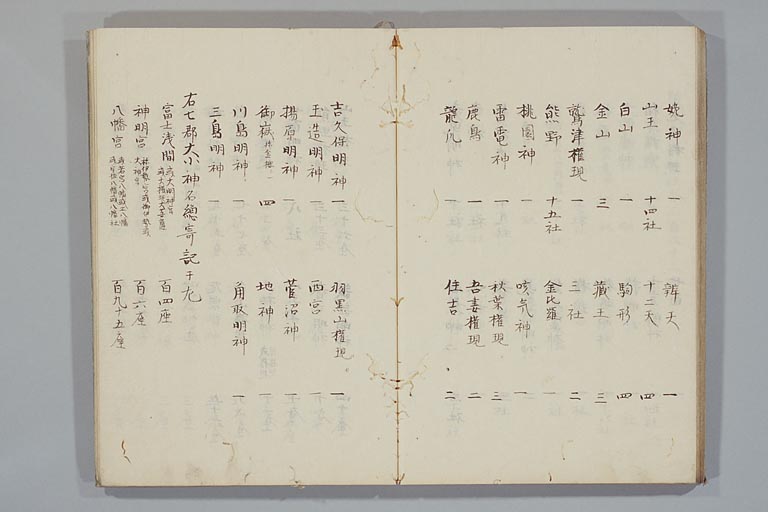 姥神 一 辨天 一
山王 十四社 十二天 四
白山 一 駒形 四
金山 三 蔵王 三
鷲津権現 一 三社 二
熊野 十五社 金比羅 一
桃園神 一 咳気神 一
雷電神 一 秋葉権現 三
鹿島 一 吾妻権現 二
龍爪 一 住吉 二
吉久保明神 一 羽黒山権現 一
玉造明神 一 西宮 一
楊原明神 一 菅沼神 一
御嶽 四 地神 一
川島明神 一 角取明神 一
三島明神 一
右七郡大小神名總寄記于左
富士浅間 百四座
神明宮 百六座
八幡宮 百九十五座